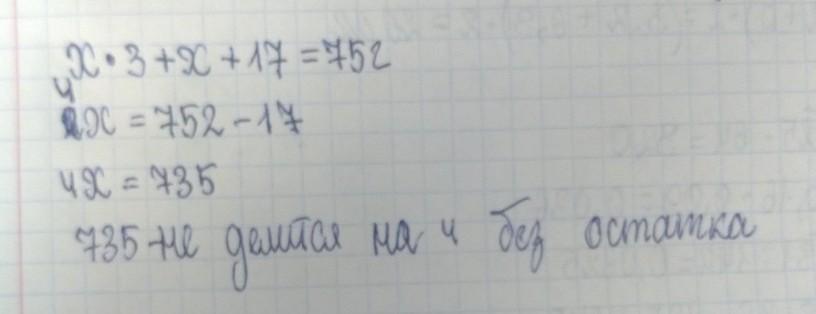 x · 3 + x + 17 = 752
4x = 752 - 17
4x = 735
735 не делится на 4 без остатка